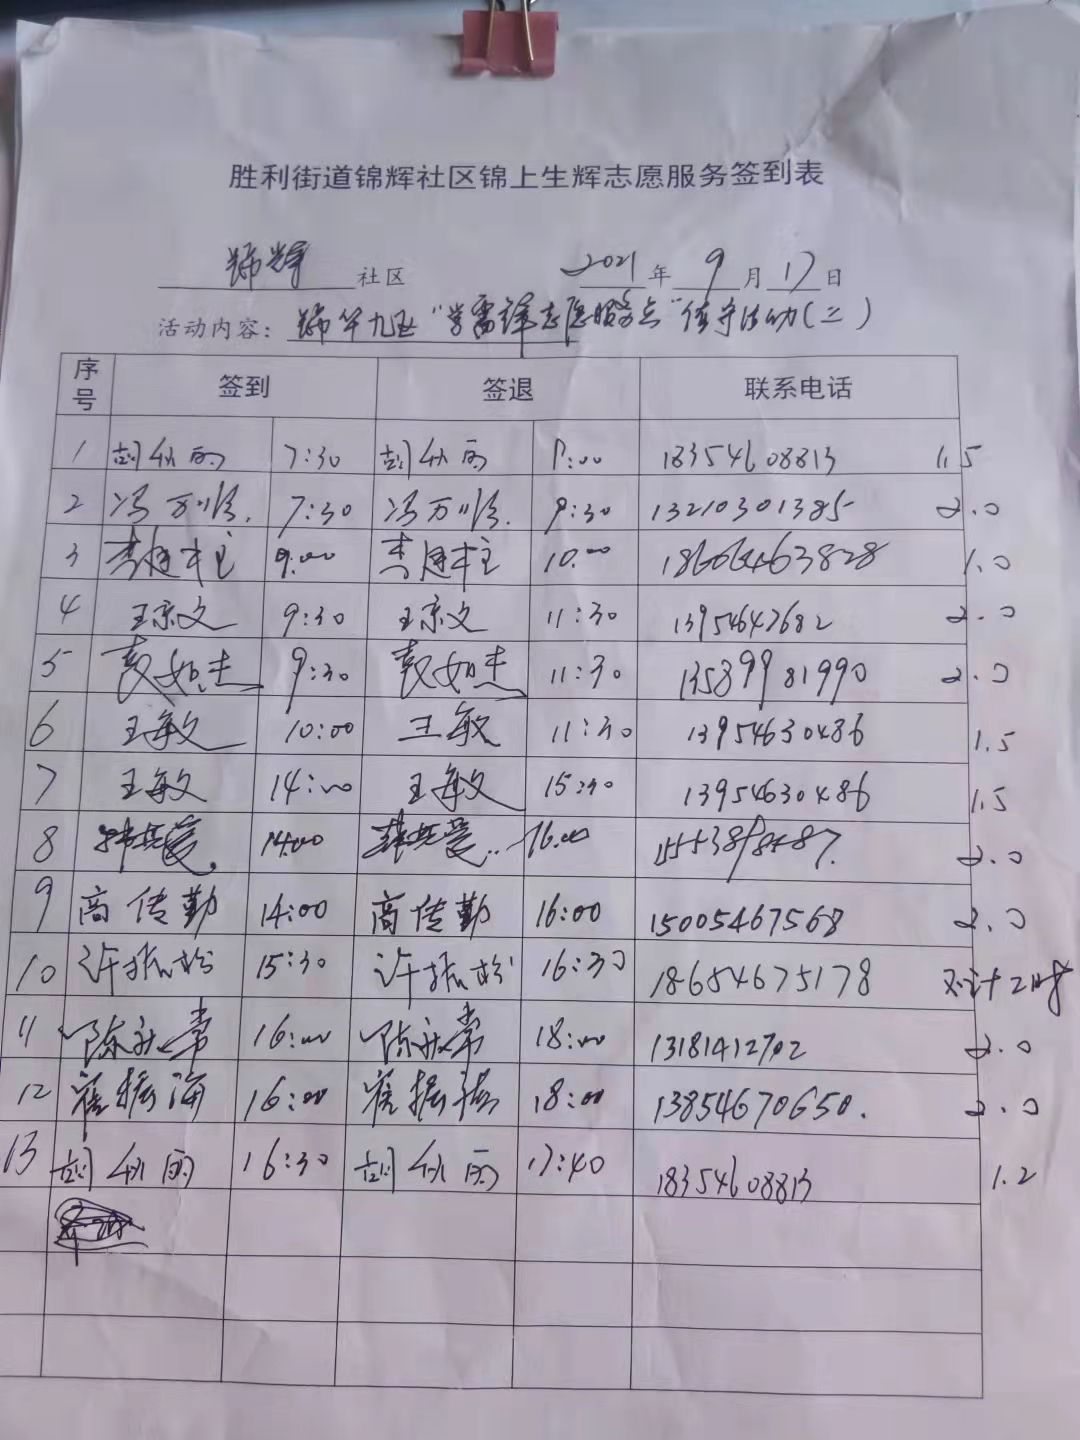 胜利街道锦辉社区锦上生辉志愿服务签到表
锦辉 社区 2021 年 9 月 17 日
活动内容: 锦华九区"学雷锋志愿服务点"值守活动(二)
序号 签到 签退 联系电话
1 胡秋雨 7:30 胡秋雨 9:00 18354608813 1.5
2 冯万顺. 7:30 冯万顺. 9:30 13210301385 2.0
3 李建柱 9:00 李建柱 10:00 1.0
4 王京文 9:30 王京文 11:30 13954647682 2.0
5 9:30 11:30 13589981990 2.0
6 王敏 10:00 王敏 11:30 13954630486 1.5
7 王敏 14:00 王敏 15:30 13954630486 1.5
8 14:00 16:00 2.0
9 商传勤 14:00 商传勤 16:00 15005467568 2.0
10 许振松 15:30 许振松 16:30 18654675178 不计工时
11 陈永常 16:00 陈永常 18:00 13181412702 2.0
12 崔振海 16:00 崔振海 18:00 13854670650. 2.0
13 胡秋雨 16:30 胡秋雨 17:40 18354608813 1.2